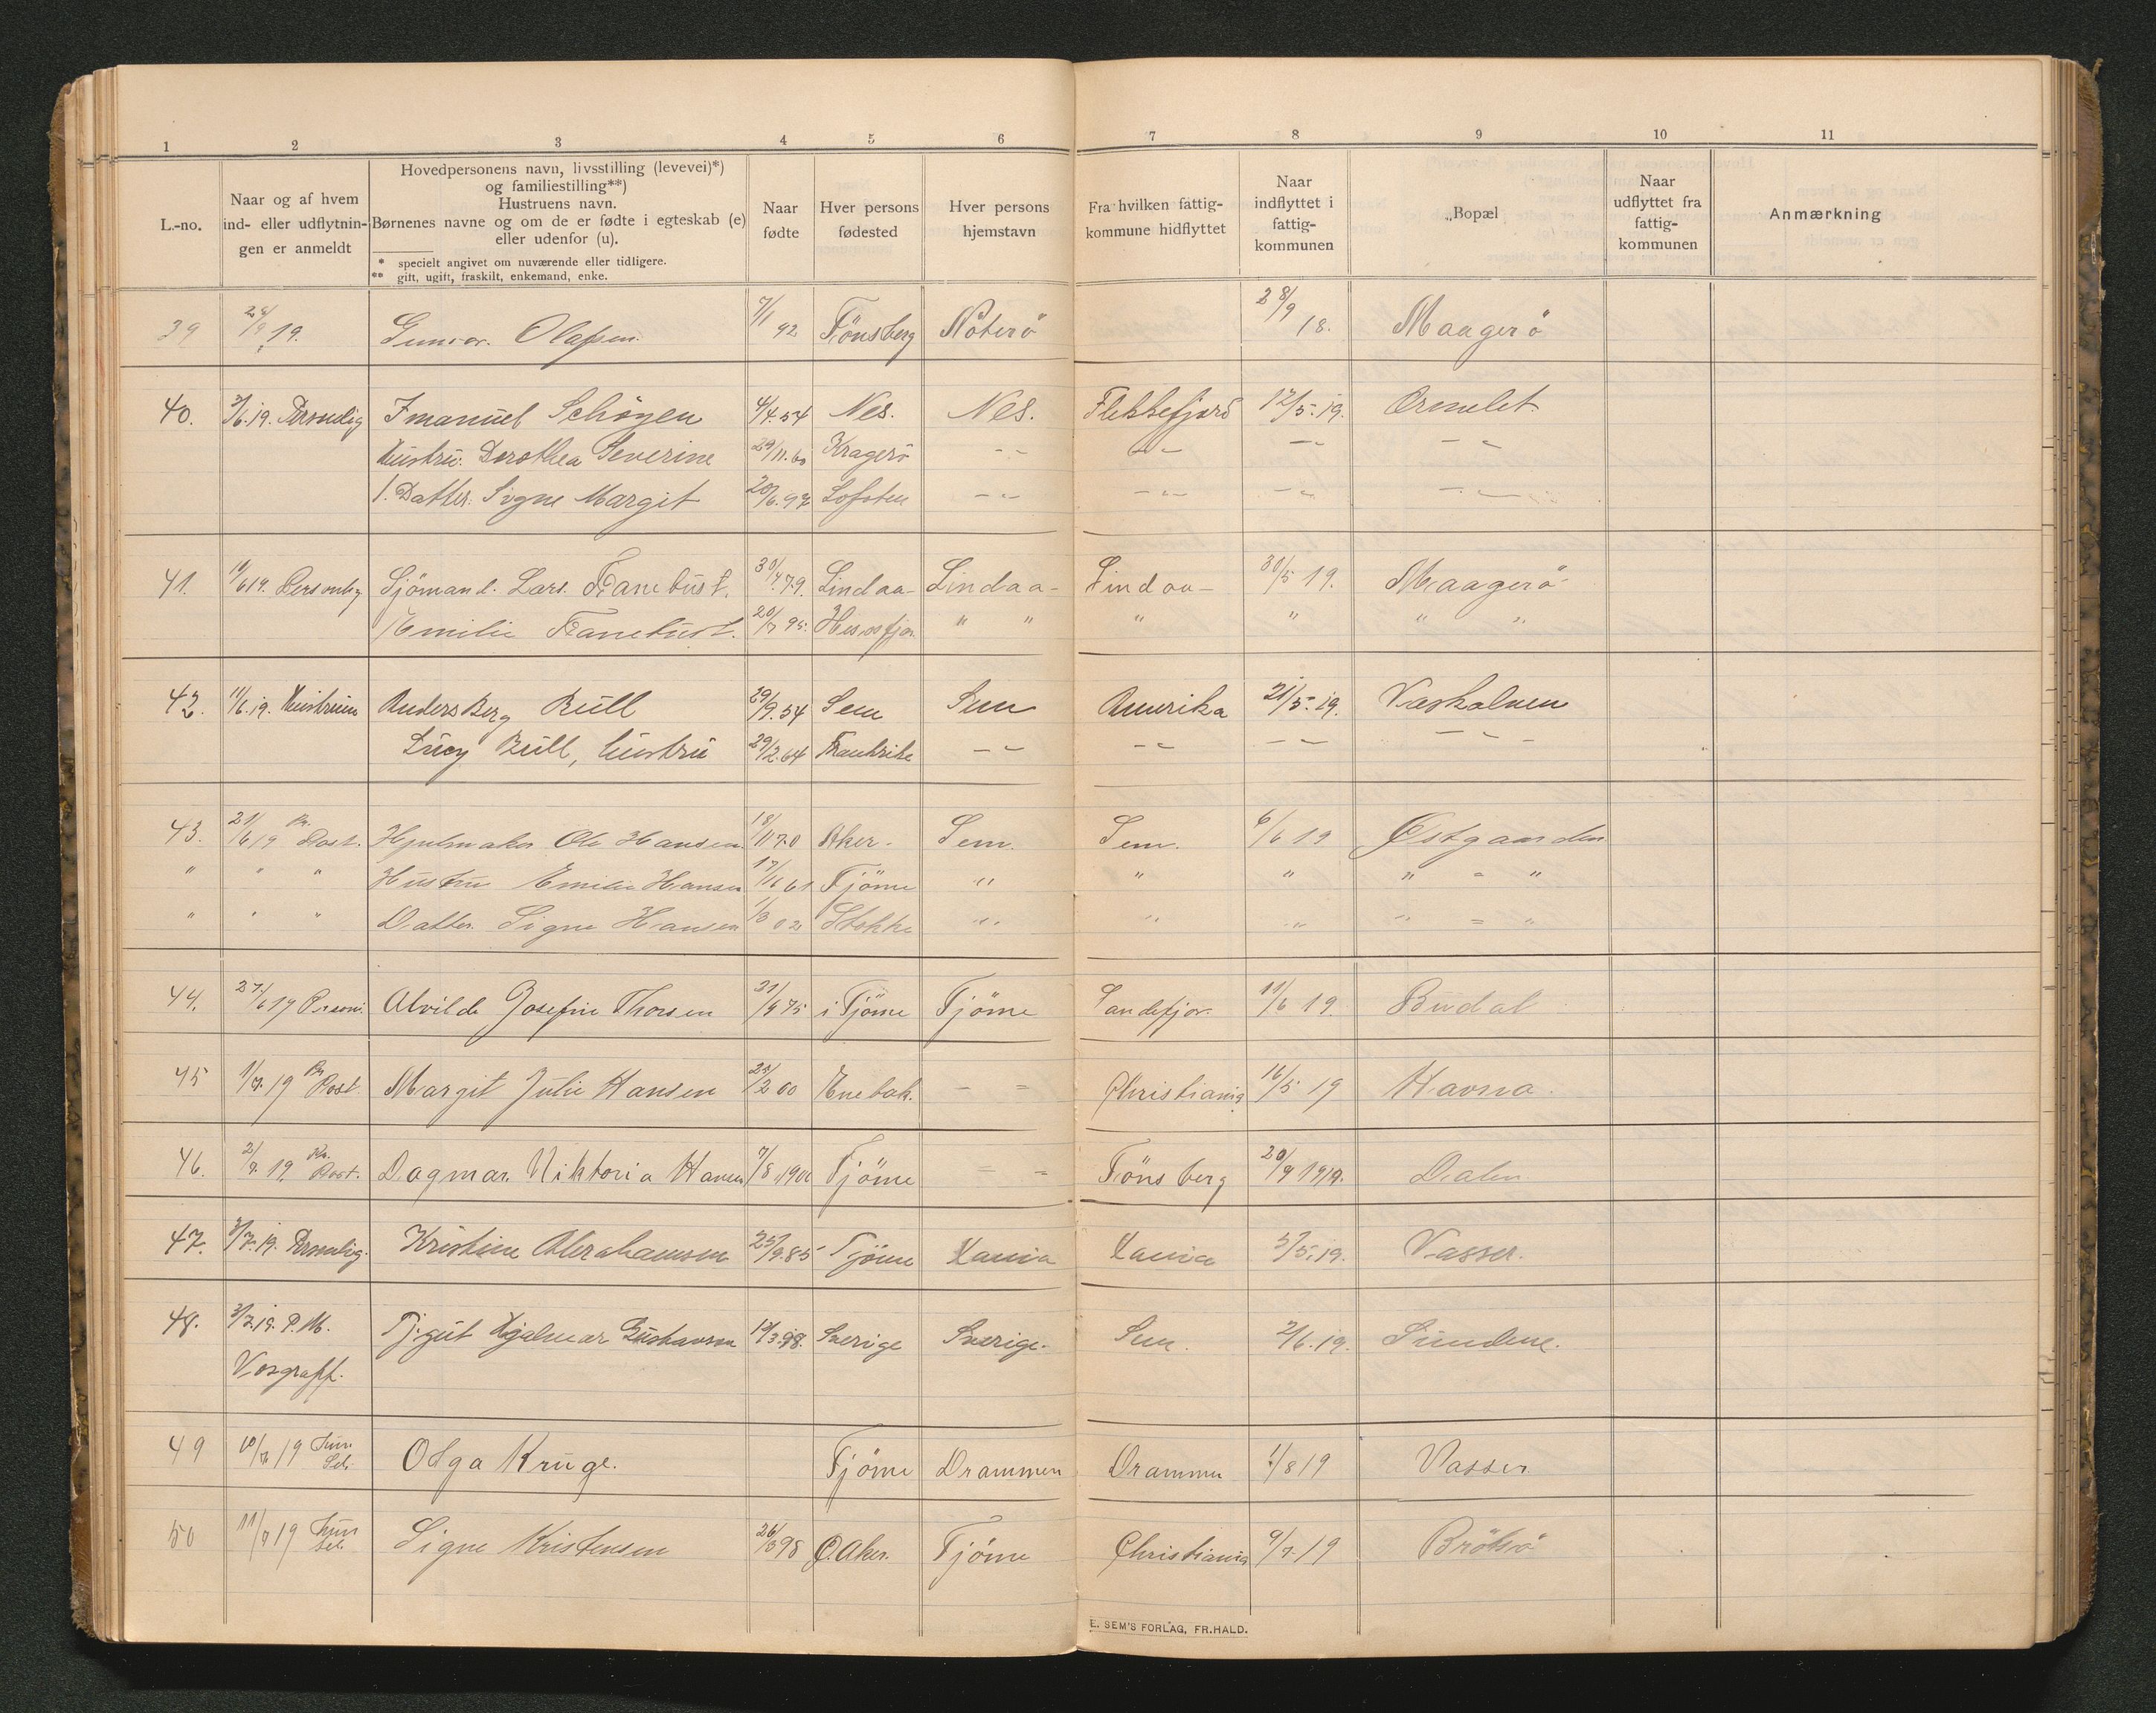 1 2 3 4 5 6 7 8 9 10 11
L.-no.
Naar og af hvem
ind- eller udflytnin-
gen er anmeldt
Hovedpersonens navn, livsstilling (levevei)*)
og familiestilling**)
Hustruens navn.
Børnenes navne og om de er fødte i egteskab (e)
eller udenfor (u).
* specielt angivet om nuværende eller tidligere.
** gift, ugift, fraskilt, enkemand, enke.
Naar
fødte
Hver persons
fødested
Hver persons
hjemstavn
Fra hvilken fattig-
kommune hidflyttet
Naar
indflyttet i
fattig-
kommunen
„Bopæl
Naar
udflyttet fra
fattig-
kommunen
Anmærkning
39 19. Gunvor. Olafsen. 7/1 92 Tönsberg Nöterö 28/9 18. Maagerö
40. 3/6.19. Personlig Imanuel Schöyen 4/4.54 Nes. Nes. Flekkefjord 12/5.19. Ormelet
Hustru: Dorothea Severine 29/11.60 Kragerö - - - - - - - -
1. Datter: Signe Margit 20/6.97 Lofoten - - - - - - - -
41. 10/6 19. Personlig Sjömand. Lars. Fanebust. 30/4.79. Lindaa- Lindaa- Lindaa- 30/5 19. Maagerö
Emilie Fanebust. 20/7 95. " " " " " "
42. 11/6.19. Hustruen Anders Berg Bull 29/9.54 Sem Sem Amerika 21/5.19. Vasholmen
Lucy Bull, hustru 29/2.64 Frankrike - - - - - - - -
43. 21/6 19 Pr. Post. Hjulmaker Ole Hansen 18/11 70 Aker. Sem. Sem. 6/6 19 Østgaarden
" " " Hustru Emilie Hansen 61 Tjöme " " " " " "
" " " Datter. Signe Hansen 1/3 02 Stokke " " " " " "
44. 27/6 19 Person. Alvilde Josefine Thorsen 21/9 75 i Tjöme Tjöme Sandefjor. 11/6 19. Budal
45 1/7. 19 Pr Post Margit Julie Hansen 25/2 00 Enebak. - = Christiania 16/5 19 Havna.
46. 2/7. 19. Pr. Post. Dagmar. Viktoria Hansen 7/8 1900 Tjöme = = Tönsberg 20/9 1919. Dalen
47. 3/7.19. Personlig. Kristine Abrahamsen 25/9.85 Tjöme Xania Xania 5/5.19. Vasser.
48. 3/7.19. P.M. Tj.gut Hjalmar Gustavson 19/3.98. Sverige Sverige. Sem. 2/6.19. Sundene.
49 10/7 19 Olga Kruge. Tjöme Drammen Drammen 1/8 19 Vasser
50 11/7 19 Signe Kristensen 26/3 98 Ø. Aker. Tjöme Christiania 9/7 19 Brötsö
E. SEM'S FORLAG, FR.HALD.